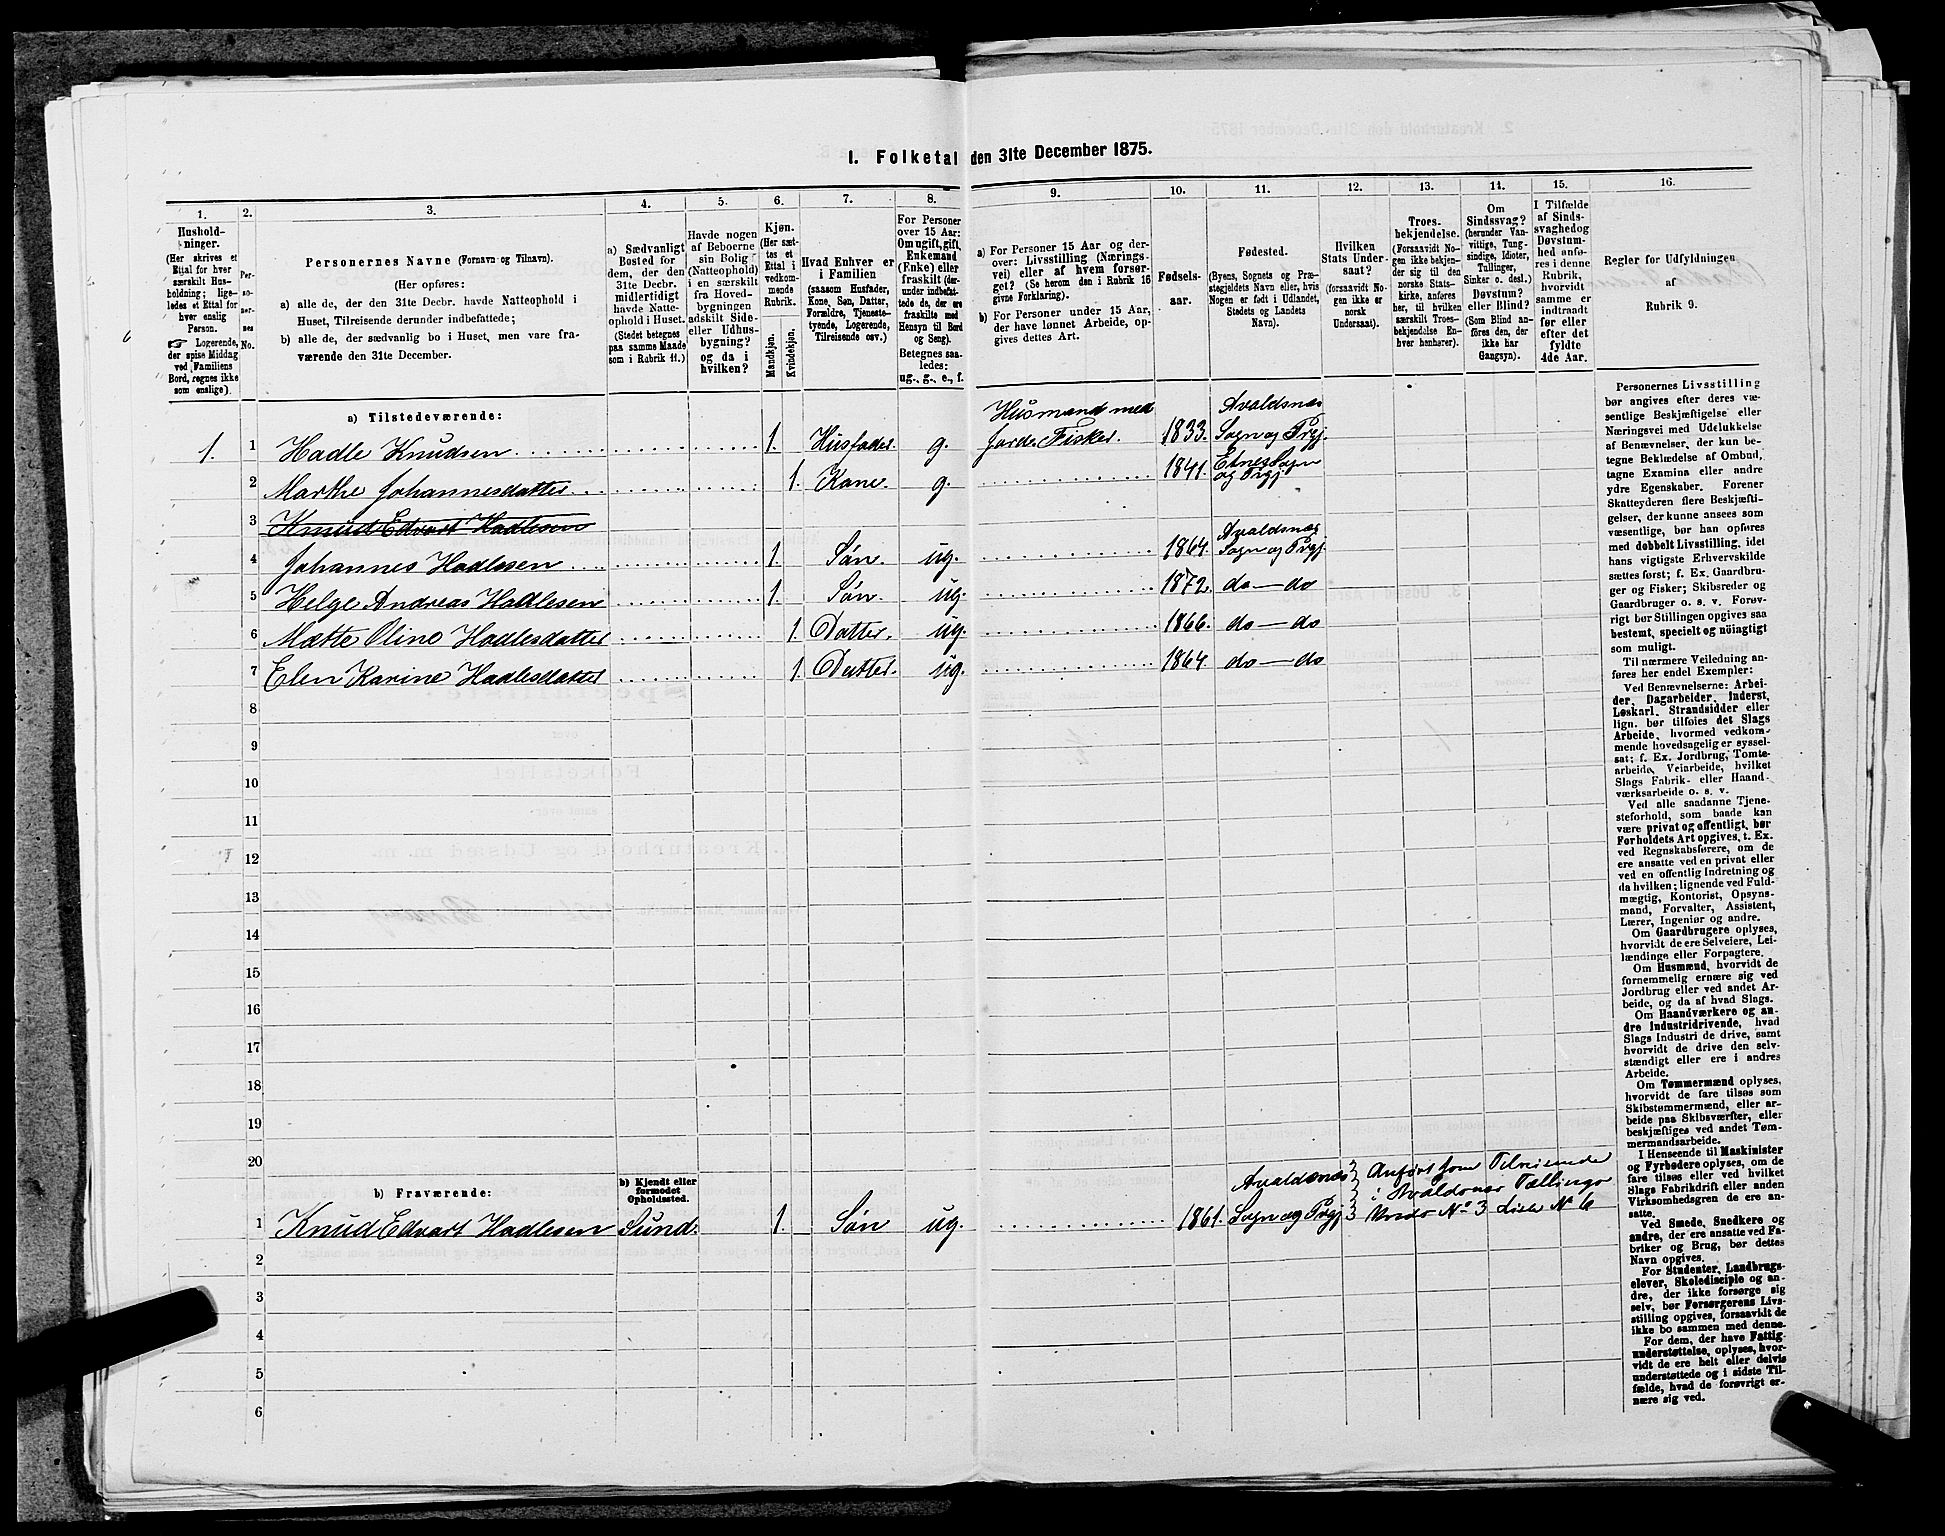 I. Folketal den 31te December 1875.
1.
2.
3.
4.
5.
6.
7.
8.
9.
10.
11.
12.
13.
14.
15.
16.
Hushold-
ninger.
(Her skrives et
Ettal for hver
særskilt Hus-
holdning; lige-
ledes et Ettal for
hver enslig
Person.
☞ Logerende,
der spise Middag
ved Familiens
Bord, regnes ikke
som enslige).
Per-
so-
ner-
nes
No.
Personernes Navne (Fornavn og Tilnavn).
(Her opføres:
a) alle de, der den 31te Decbr. havde Natteophold i
Huset, Tilreisende derunder indbefattede;
b) alle de, der sædvanlig bo i Huset, men vare fra-
værende den 31te December.
a) Sædvanligt
Bosted for
dem, der den
31te Decbr.
midlertidigt
havde Natte-
ophold i Huset.
(Stedet betegnes
paa samme Maade
som i Rubrik 11.)
Havde nogen
af Beboerne
sin Bolig
(Natteophold)
i en særskilt
fra Hoved-
bygningen
adskilt Side-
eller Udhus-
bygning?
og da i
hvilken?
Kjøn.
(Her sæt-
tes et
Ettal i
vedkom-
mende
Rubrik.
Mandkjøn.
Kvindekjøn.
Hvad Enhver er
i Familien
(saasom Husfader,
Kone, Søn, Datter,
Forældre, Tjeneste-
tyende, Logerende,
Tilreisende osv.)
For Personer
over 15 Aar:
Om ugift, gift,
Enkemand
(Enke) eller
fraskilt (der-
under indbefat-
tede de, der ere
fraskilte med
Hensyn til Bord
og Seng).
Betegnes saa-
ledes:
ug., g., e., f.
a) For Personer 15 Aar og der-
over: Livsstilling (Nærings-
vei) eller af hvem forsør-
get? (Se herom den i Rubrik 16
givne Forklaring).
b) For Personer under 15 Aar,
der have lønnet Arbeide, op-
gives dettes Art.
Fødsels-
aar.
Fødested.
(Byens, Sognets og Præ-
stegjeldets Navn eller, hvis
Nogen er født i Udlandet,
Stedets og Landets
Navn).
Hvilken
Stats Under-
saat?
(forsaavidt No-
gen ikke er
norsk
Undersaat).
Troes-
bekjendelse.
(Forsaavidt No-
gen ikke bekjen-
der sig til den
norske Stats-
kirke, anføres
her, til hvilken
særskilt Troes-
bekjendelse En-
hver henhører).
Om
Sindssvag?
(herunder Van-
vittige, Tung-
sindige, Idioter,
Tullinger,
Sinker o. desl.)
Døvstum?
eller Blind?
(Som Blind an-
føres den, der
ikke har
Gangsyn).
I Tilfælde
af Sinds-
svaghed og
Døvstum-
hed anfø-
res i denne
Rubrik,
hvorvidt
samme er
indtraadt
før eller
efter det
fyldte
4de Aar.
Regler for Udfyldningen
af
Rubrik 9.
a) Tilstedeværende:
1. 1 Hadle Knudsen 1. Husfader. g. Husmand med Jord. Fisker. 1833. Avaldsnæs Sogn og Prgj.
2 Marthe Johannesdatter 1. Kone. g. 1841. Etne Sogn og Prgj
3 Knud Edvart Hadlesen
4 Johannes Hadlesen 1. Søn. ug. 1864. Avaldsnæs Sogn og Prgj.
5 Helge Andreas Hadlesen 1. Søn. ug. 1872. do — do
6 Mætte Oline Hadlesdatter 1. Datter. ug. 1866. do — do
7 Elen Karine Hadlesdatter 1. Datter. ug. 1864 do — do
8
9
10
11
12
13
14
15
16
17
18
19
20
b) Fraværende:
b) Kjendt eller
formodet
Opholdssted.
1 Knud Edvart Hadlesen Sund. 1. Søn ug. 1861. Avaldsnæs Sogn og Prgj Anført som Tilreisende
i Avaldsnæs Tællings
Kreds No 3 Liste N 6
2
3
4
5
6
Personernes Livsstilling
bør angives efter deres væ-
sentlige Beskjæftigelse eller
Næringsvei med Udelukkelse
af Benævnelser, der kun be-
tegne Beklædelse af Ombud,
tagne Examina eller andre
ydre Egenskaber. Forener
Skatteyderen flere Beskjæfti-
gelser, der kunne ansees som
væsentlige, bør han opføres
med dobbelt Livsstilling, idet
hans vigtigste Erhvervskilde
sættes først; f. Ex. Gaardbru-
ger og Fisker; Skibsreder og
Gaardbruger o. s. v. Forøv-
rigt bør Stillingen opgives saa
bestemt, specielt og nöiagtigt
som muligt.
Til nærmere Veiledning an-
føres her endel Exempler:
Ved Benævnelserne: Arbei-
der, Dagarbeider, Inderst,
Løskarl, Strandsidder eller
lign. bør tilføies det Slags
Arbeide, hvormed vedkom-
mende hovedsagelig er syssel-
sat; f. Ex. Jordbrug, Tomte-
arbeide, Veiarbeide, hvilket
Slags Fabrik- eller Haand-
værksarbeide o. s. v.
Ved alle saadanne Tjene-
steforhold, som baade kan
være privat og offentligt, bør
Forholdets Art opgives, t. Ex.
ved Regnskabsførere, om de
ere ansatte ved en privat eller
ved en offentlig Indretning og
da hvilken; lignende ved Fuld-
mægtig, Kontorist, Opsyns-
mand, Forvalter, Assistent,
Lærer, Ingeniør og andre.
Om Gaardbrugere oplyses,
hvorvidt de ere Selveiere, Lei-
lændinge eller Forpagtere.
Om Husmænd, hvorvidt de
fornemmelig ernære sig ved
Jordbrug eller ved andet Ar-
beide, og da af hvad Slags.
Om Haandværkere og an-
dre Industridrivende, hvad
Slags Industri de drive, samt
hvorvidt de drive den selv-
stændigt eller ere i andres
Arbeide.
Om Tømmermænd oplyses,
hvorvidt de fare tilsøs som
Skibstømmermænd, eller ar-
beide paa Skibsværfter, eller
beskjæftiges ved andet Tøm-
mermandsarbeide.
I Henseende til Maskinister
og Fyrbødere oplyses, om de
fare tilsøs eller ved hvilket
Slags Fabrikdrift eller anden
Virksomhedsgren de ere an-
satte.
Ved Smede, Snedkere og
andre, der ere ansatte ved Fa-
briker og Brug, bør dettes
Navn opgives.
For Studenter, Landbrugs-
elever, Skoledisciple og an-
dre, der ikke forsørge sig
selv, bør Forsørgerens Livs-
stilling opgives, forsaavidt de
ikke bo sammen med denne.
For dem, der have Fattig-
understøttelse, oplyses, hvor-
vidt de ere helt eller delvis
understøttede og i sidste Til-
fælde, hvad de forøvrigt er-
nære sig ved.